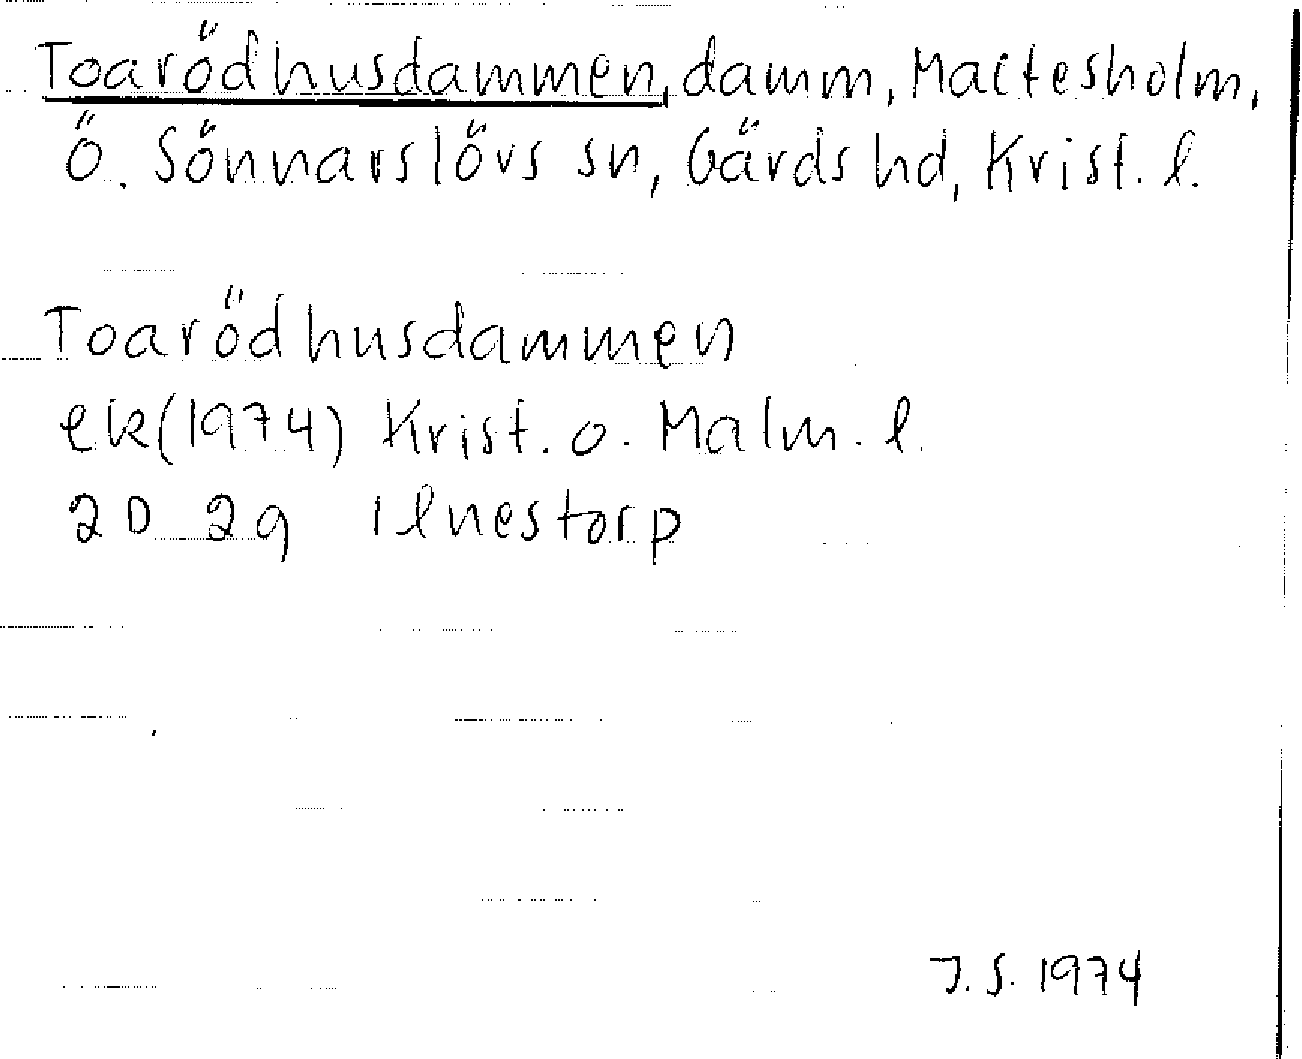 Toarödhusdammen, damm, Maltesholm,
Ö. Sönnarslövs sn, Gärds hd, Krist. l.
Toarödhusdammen
ek(1974) Krist. o. Malm. l.
2D 2g Ilnestorp
J.S. 1974